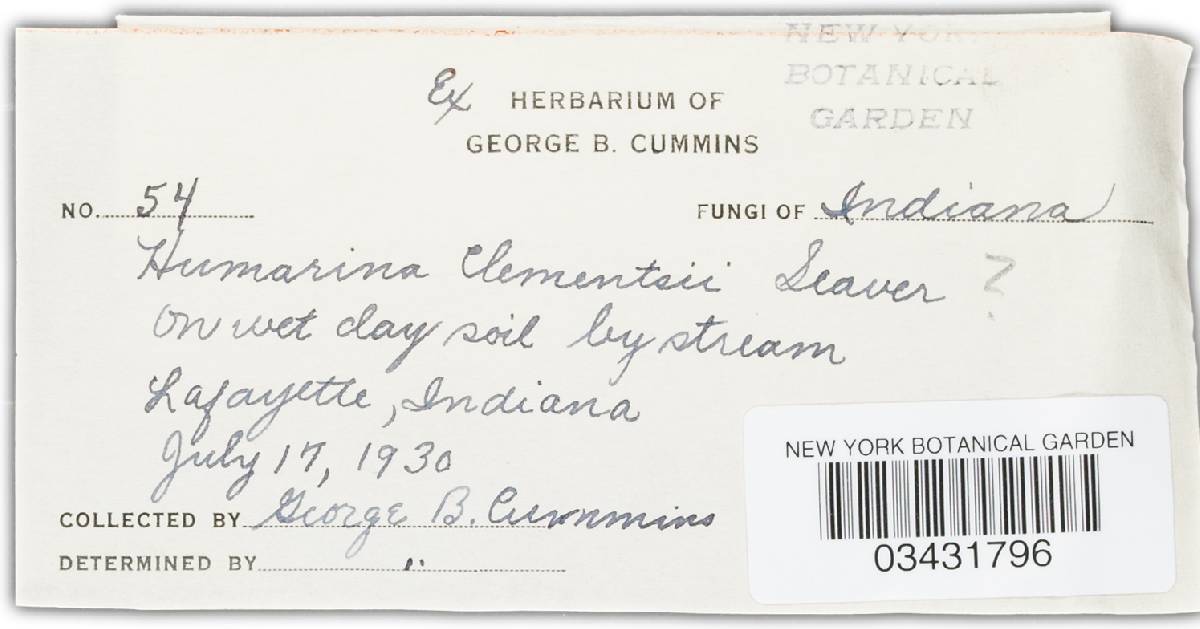 NEW YORK
BOTANICAL
GARDEN
Ex HERBARIUM OF
GEORGE B. CUMMINS
NO. 54
FUNGI OF Indiana
Humarina Clementsii Seaver ?
on wet clay soil by stream
Lafayette, Indiana
July 17, 1930
COLLECTED BY George B. Cummmins
DETERMINED BY "
NEW YORK BOTANICAL GARDEN
03431796